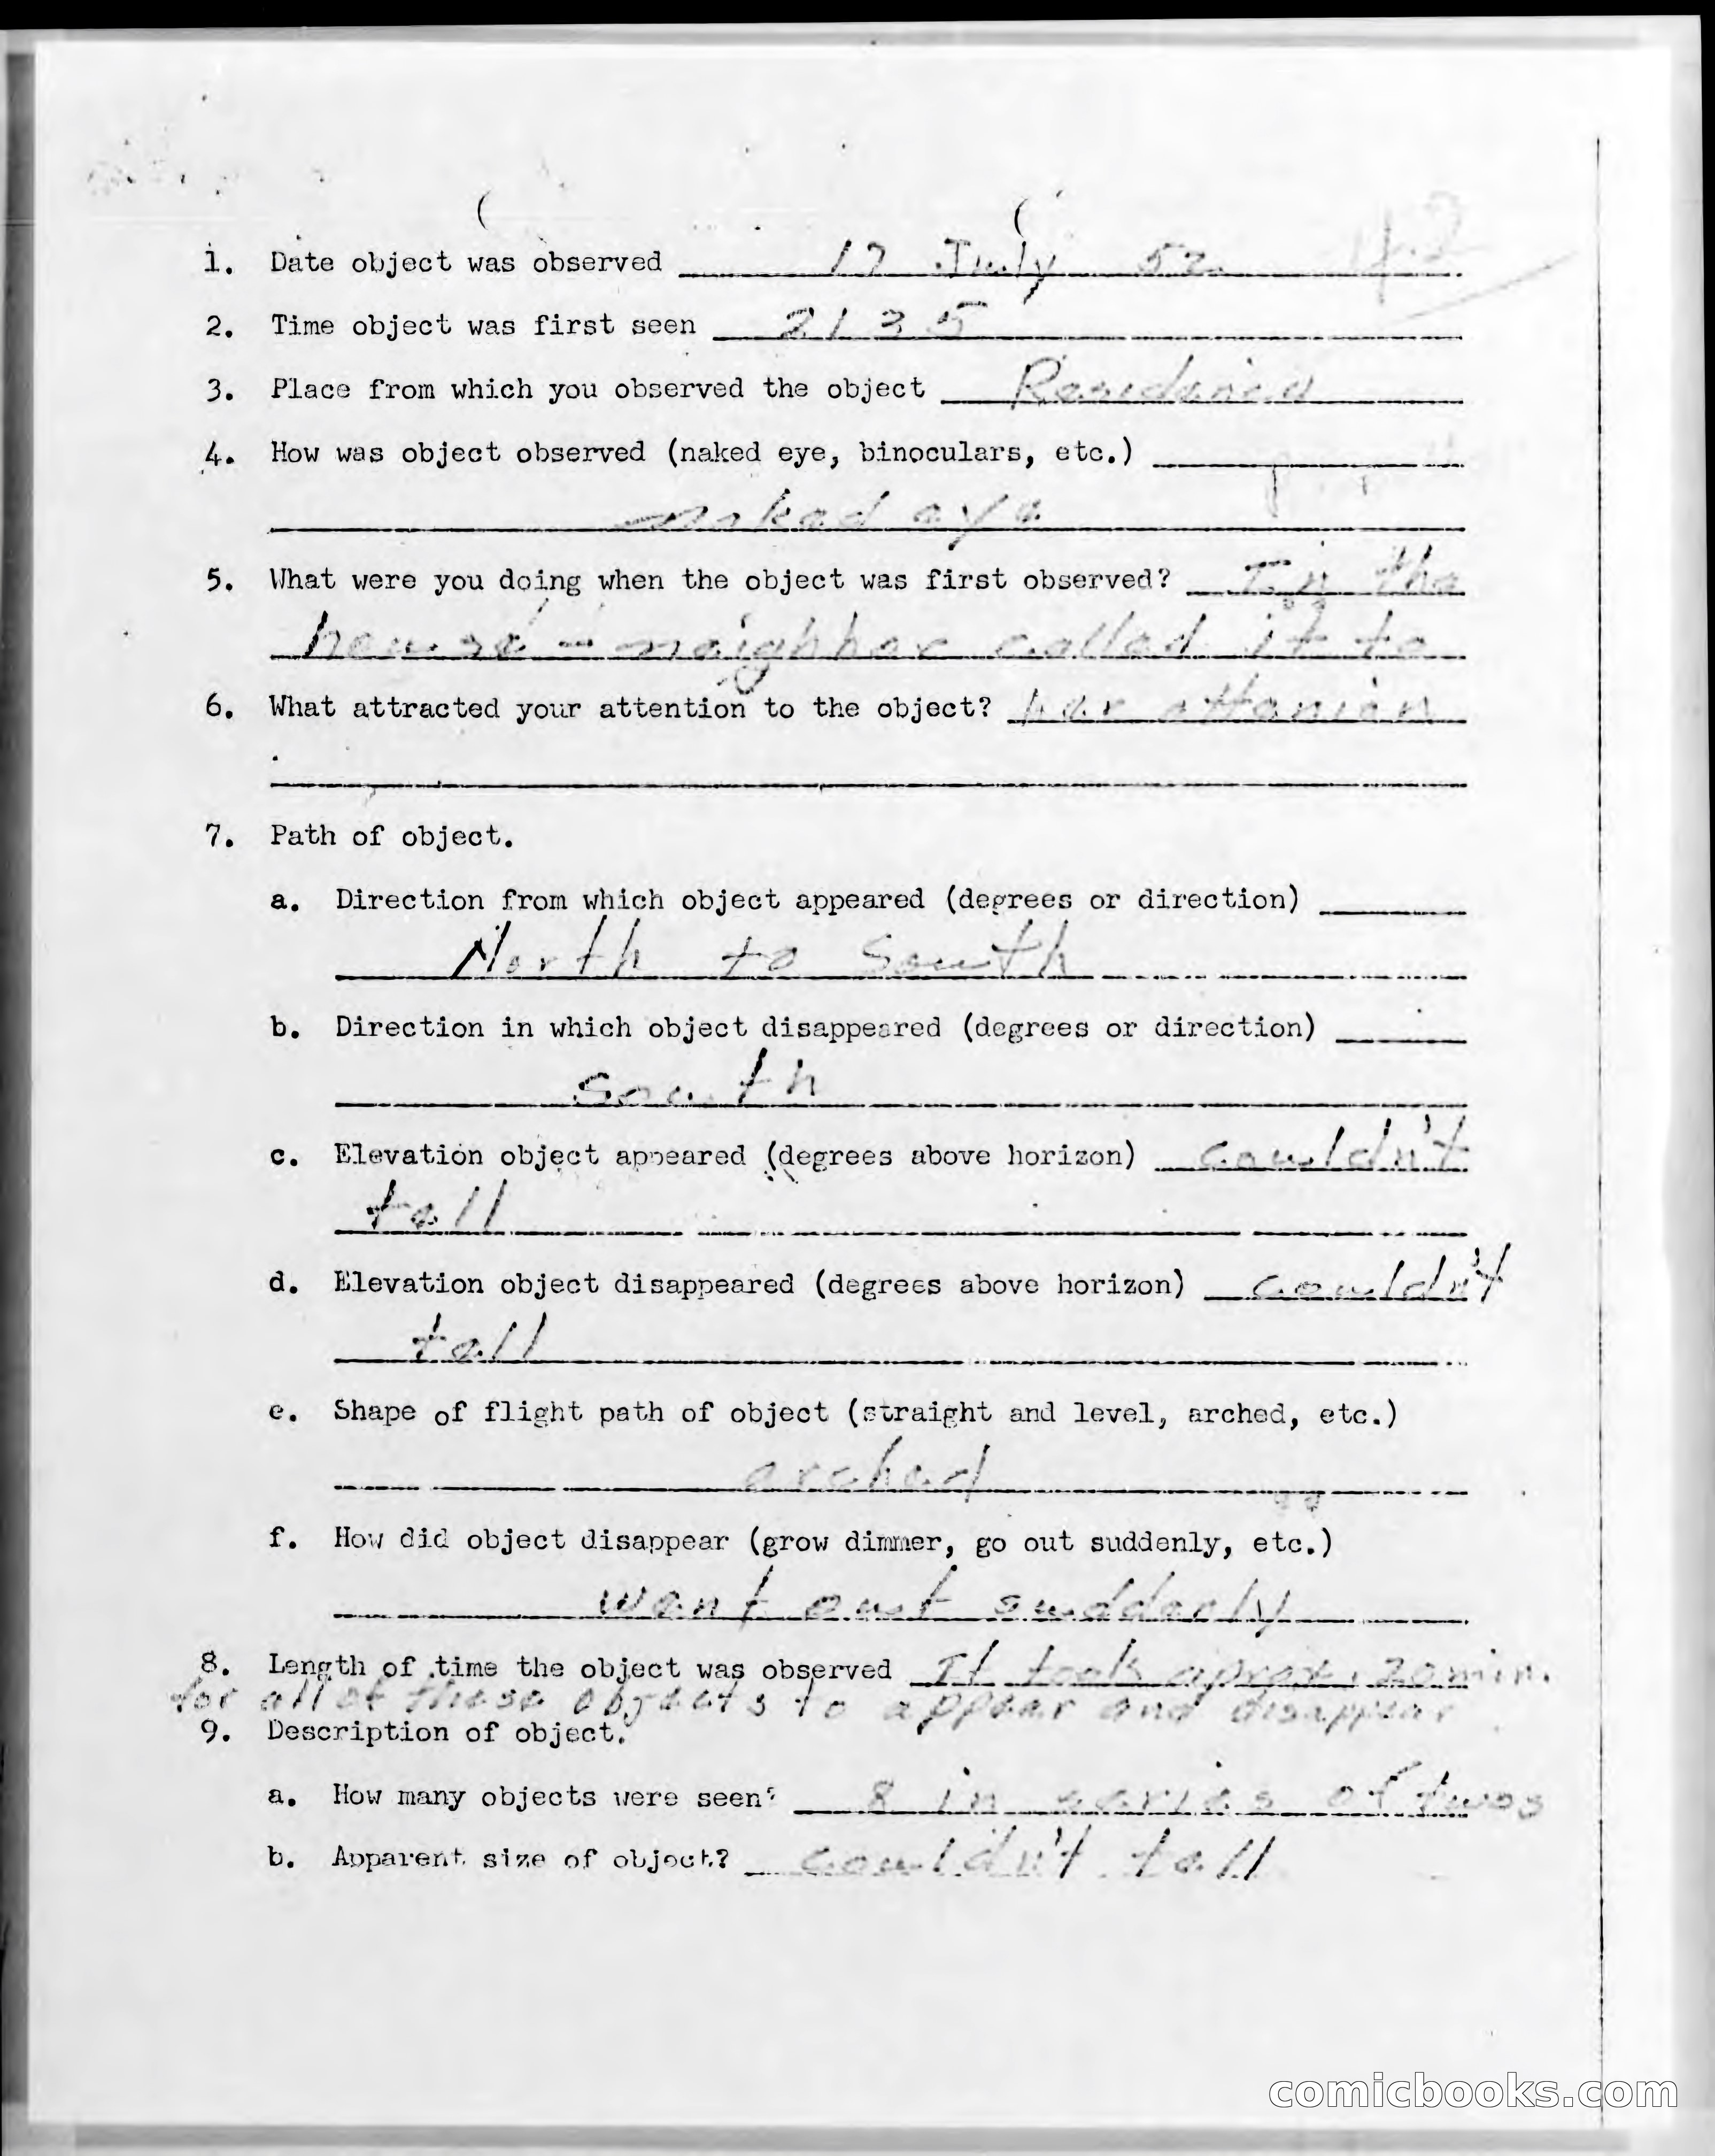 1. Date object was observed 17 July 52
2. Time object was first seen 2135
3. Place from which you observed the object Residence
4. How was object observed (naked eye, binoculars, etc.)
naked eye
5. What were you doing when the object was first observed? In the
house - neighbor called it to
6. What attracted your attention to the object? her attenion
7. Path of object.
a. Direction from which object appeared (degrees or direction)
North to South
b. Direction in which object disappeared (degrees or direction)
South
c. Elevation object appeared (degrees above horizon) couldn't
tell
d. Elevation object disappeared (degrees above horizon) couldn't
tell
e. Shape of flight path of object (straight and level, arched, etc.)
arched
f. How did object disappear (grow dimmer, go out suddenly, etc.)
went out suddenly
8. Length of time the object was observed It took aprox. 20 min.
for all of these objects to appear and disappear
9. Description of object.
a. How many objects were seen? 8 in series of twos
b. Apparent size of object? couldn't tell
comicbooks.com